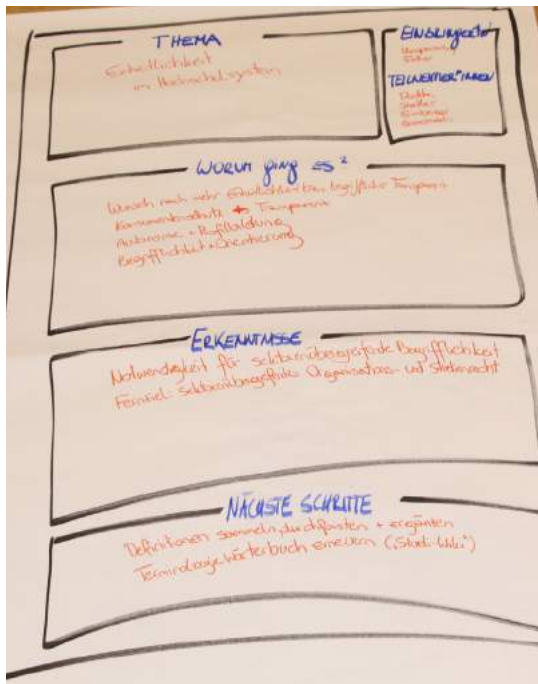 THEMA
Einheitlichkeit
im Hochschulsystem
EINBRINGER*IN
TEILNEHMER*INNEN
WORUM ging ES?
Wunsch nach mehr Einheitlichkeit bzw. begrifflicher Transparenz
Konsumentenschutz → Transparenz
Autonomie + Profilbildung
Begrifflichkeit → Orientierung
ERKENNTNISSE
Notwendigkeit für sektorenübergreifende Begrifflichkeit
Fernziel: sektorenübergreifendes Organisations- und Studienrecht
NÄCHSTE SCHRITTE
Definitionen sammeln, durchforsten + ergänzen
Terminologie Wörterbuch erneuern ("Studi-Wiki")